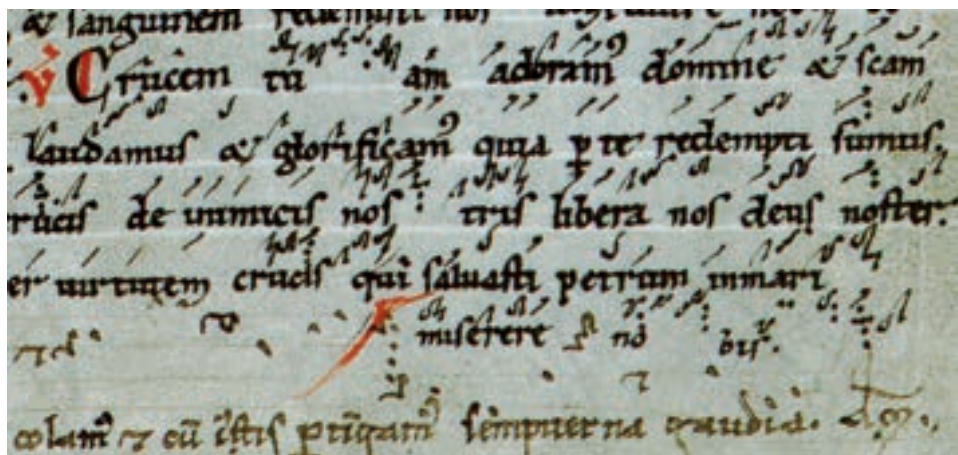 & sanguinem redemisti nos
V Crucem tu am adoram⁹ domine & scam
laudamus & glorificam⁹ quia p te redempti sumus.
rucis de inimicis nos tris libera nos deus noster.
er uirtutem crucis qui saluasti petrum inmari
miserere no bis.
colam⁹ & cū istis ptigam⁹ sempiterna gaudia.